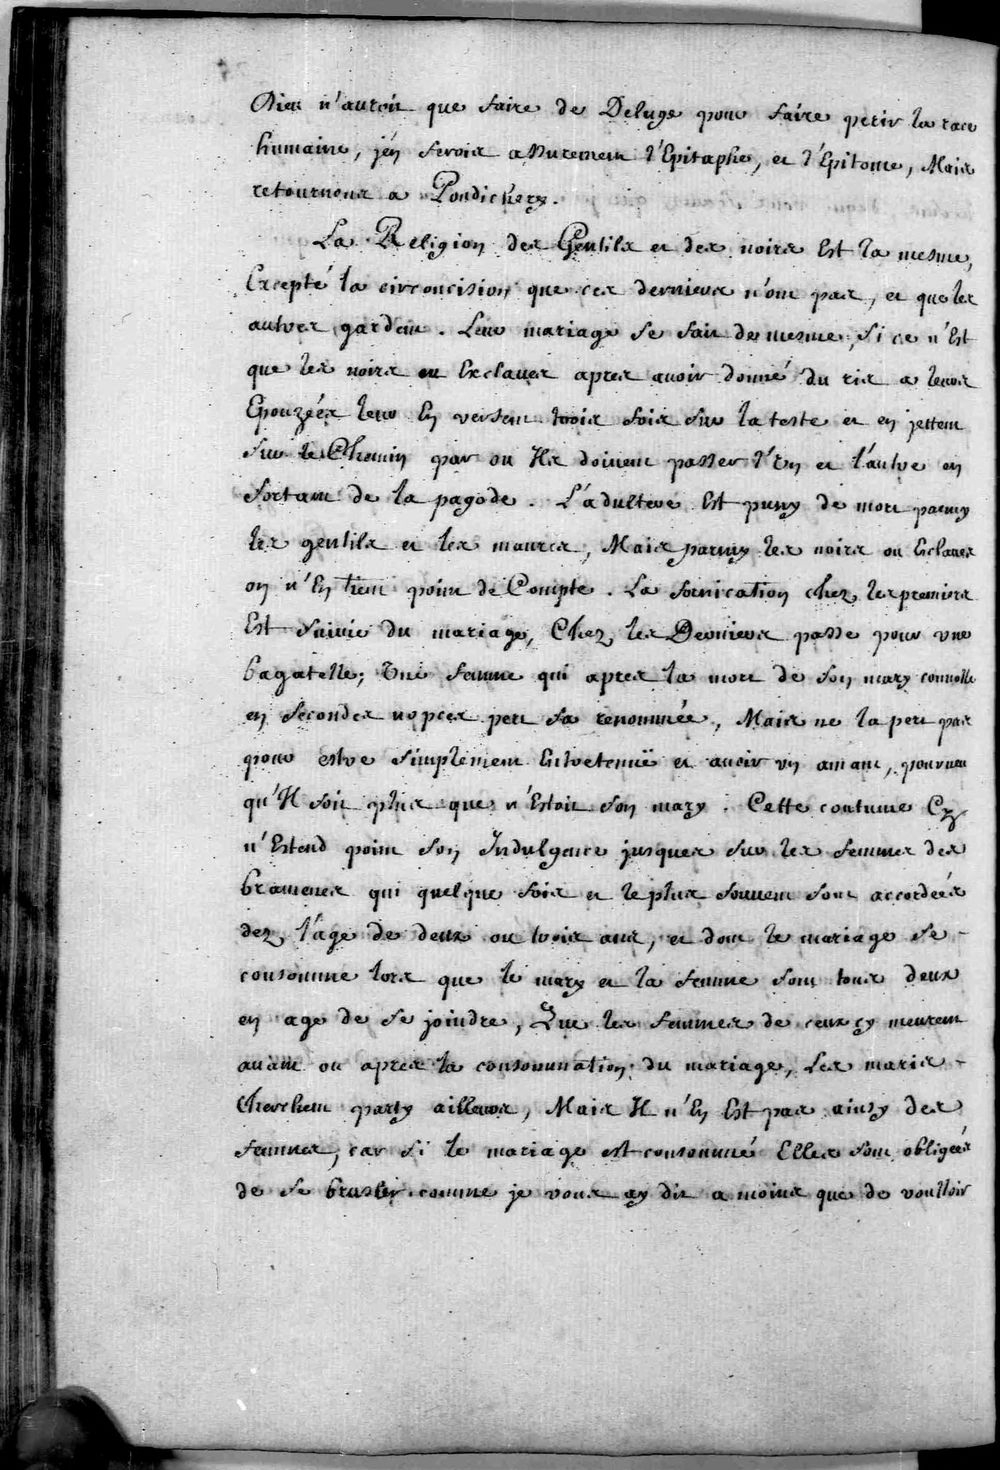 Dieu n'auroit que faire de Deluge pour faire perir la race
humaine, j'en ferois assurement l'Epitaphe, et l'Epitome, Mais
retournons a Pondichery.
La Religion des Gentils et des noirs Est la mesme,
Excepté la circoncision que ces derniers n'ont pas, et que les
autres gardent. Leur mariage se fait de mesme, si ce n'Est
que les noirs ou Esclaves apres avoir donné du ris a leurs
Epouzées leur En versent trois fois sur la teste et en jettent
sur le Chemin par ou Ils doivent passer l'Un et l'autre en
sortant de la pagode. L'adultere Est puny de mort parmy
les gentils et les maures, Mais parmy les noirs ou Esclaves
on n'En tient point de Compte. La fornication chez les premiers
Est suivie du mariage, Chez les Derniers passe pour une
bagatelle; Une femme qui apres la mort de son mary convolle
en secondes nopces pert sa renommée, Mais ne la pert pas
pour estre simplement Entretenuë et avoir un amant, pourveu
qu'Il soit plus que n'Estoit son mary. Cette coutume Cy
n'Estend point son Indulgence jusques sur les femmes des
bramenes qui quelque fois et le plus souvent sont accordées
dez l'age de deux ou trois ans, et dont le mariage se
consomme lors que le mary et la femme sont tous deux
en age de se joindre, Que les femmes de ceux cy meurent
avant ou apres la consommation du mariage, Les maris
Cherchent party ailleurs, Mais Il n'En Est pas ainsy des
femmes, car si le mariage est consommé Elles sont obligées
de se brusler comme je vous ay dit a moins que de voulloir